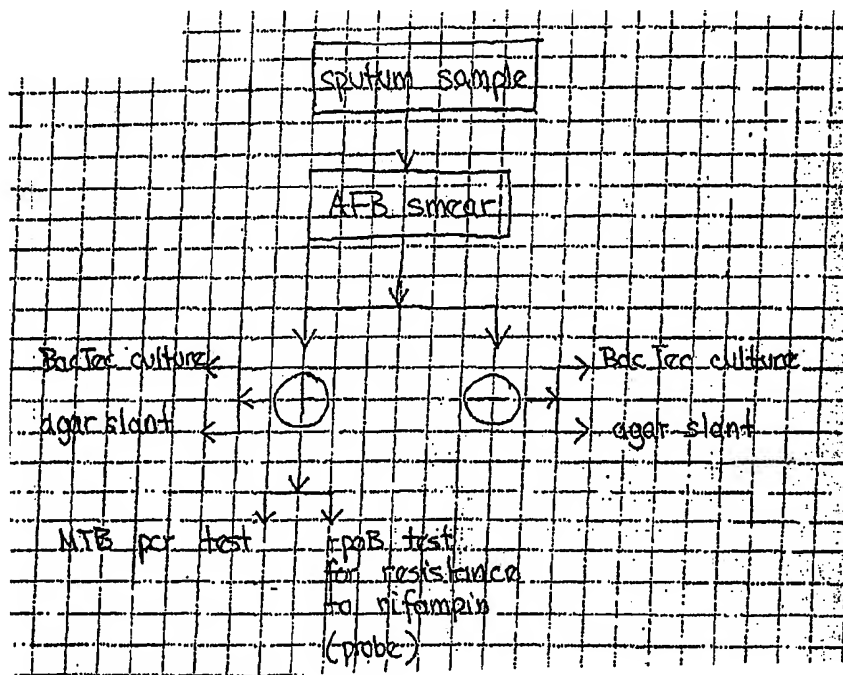 sputum sample
AFB smear
BacTec culture
BacTec culture
+
−
agar slant
agar slant
MTB pcr test
rpoB test
for resistance
to rifampin
(probe)